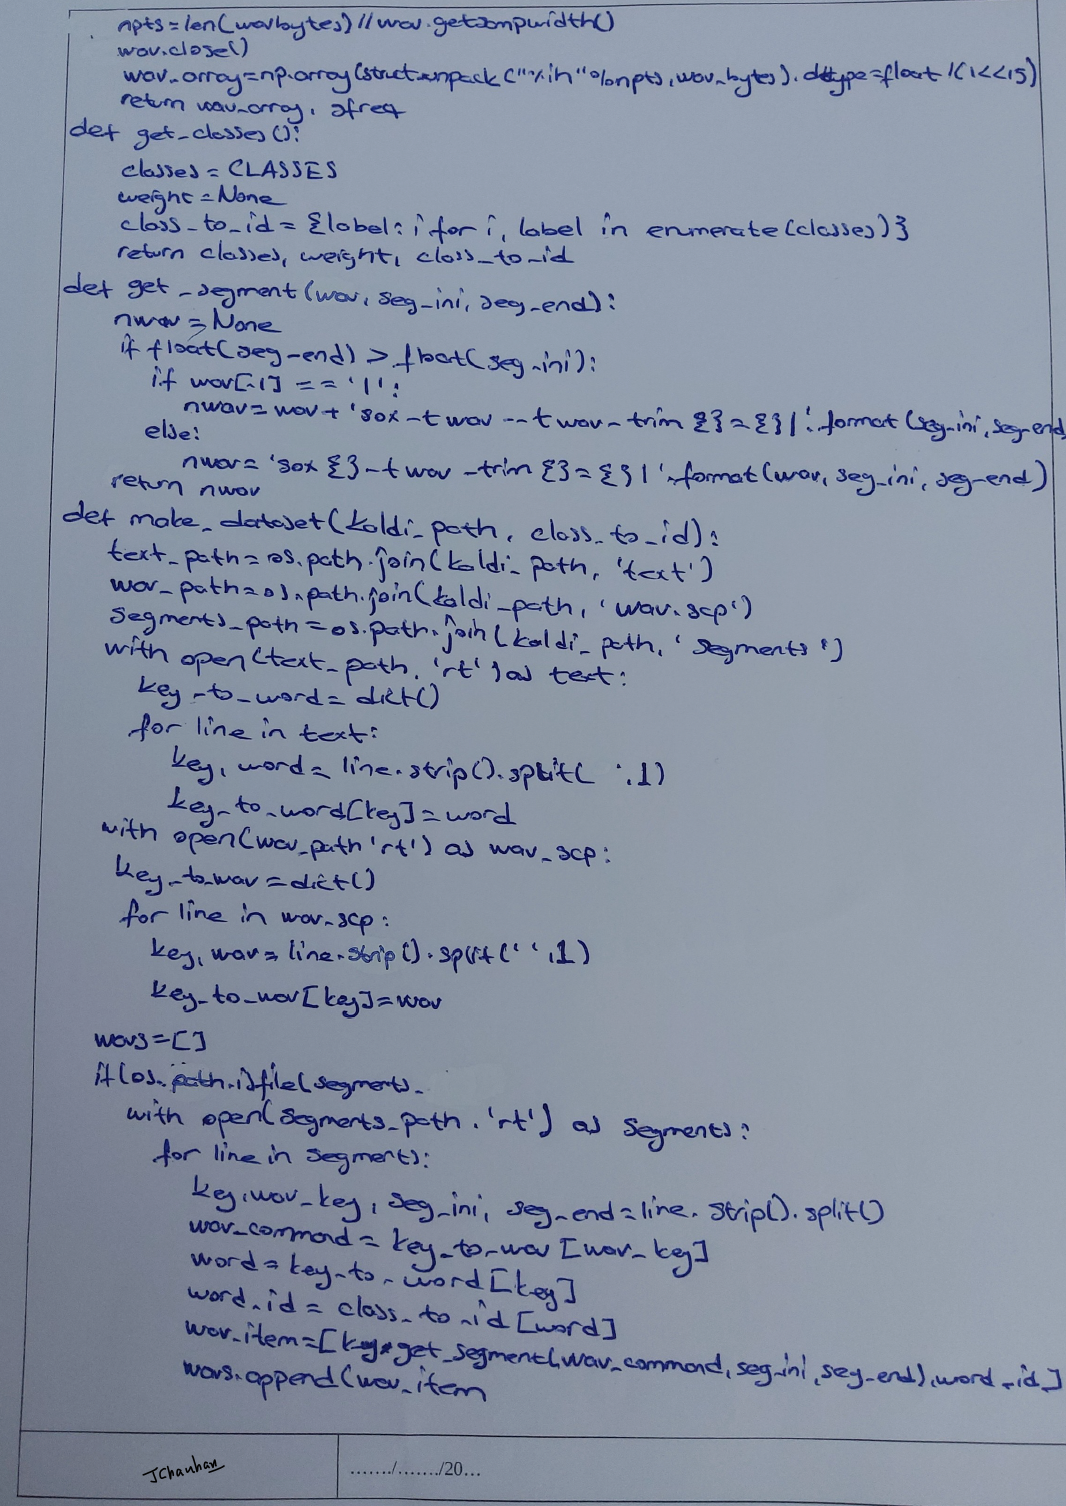 npts=len(wavbytes)//wav.getsompwidth()
wav.close()
wav_array=np.array(struct.unpack("%ih"%npts,wav_bytes).dtype=float/(1<<15)
return wav_array, sfreq
def get_classes():
classes = CLASSES
weight = None
class_to_id = {label: i for i, label in enumerate(classes)}
return classes, weight, class_to_id
def get_segment(wav, seg_ini, seg_end):
nwav = None
if float(seg_end) > float(seg_ini):
if wav[-1] == '|':
nwav = wav + 'sox -t wav - -t wav - trim {} = {} |'.format(seg_ini, seg_end
else:
nwav = 'sox {} -t wav - trim {} = {} |'.format(wav, seg_ini, seg_end)
return nwav
def make_dataset(kaldi_path, class_to_id):
text_path = os.path.join(kaldi_path, 'text')
wav_path = os.path.join(kaldi_path, 'wav.scp')
segments_path = os.path.join(kaldi_path, 'segments')
with open(text_path, 'rt') as text:
key_to_word = dict()
for line in text:
key, word = line.strip().split( ',1)
key_to_word[key] = word
with open(wav_path 'rt') as wav_scp:
key_to_wav = dict()
for line in wav_scp:
key, wav = line.strip().split(' ',1)
key_to_wav[key] = wav
wavs = []
if(os.path.isfile(segments_
with open(segments_path, 'rt') as segments:
for line in segments:
key, wav_key, seg_ini, seg_end = line.strip().split()
wav_command = key_to_wav[wav_key]
word = key_to_word[key]
word_id = class_to_id[word]
wav_item = [key, get_segment(wav_command, seg_ini, seg_end), word_id]
wavs.append(wav_item
JChauhan
......./......./20...